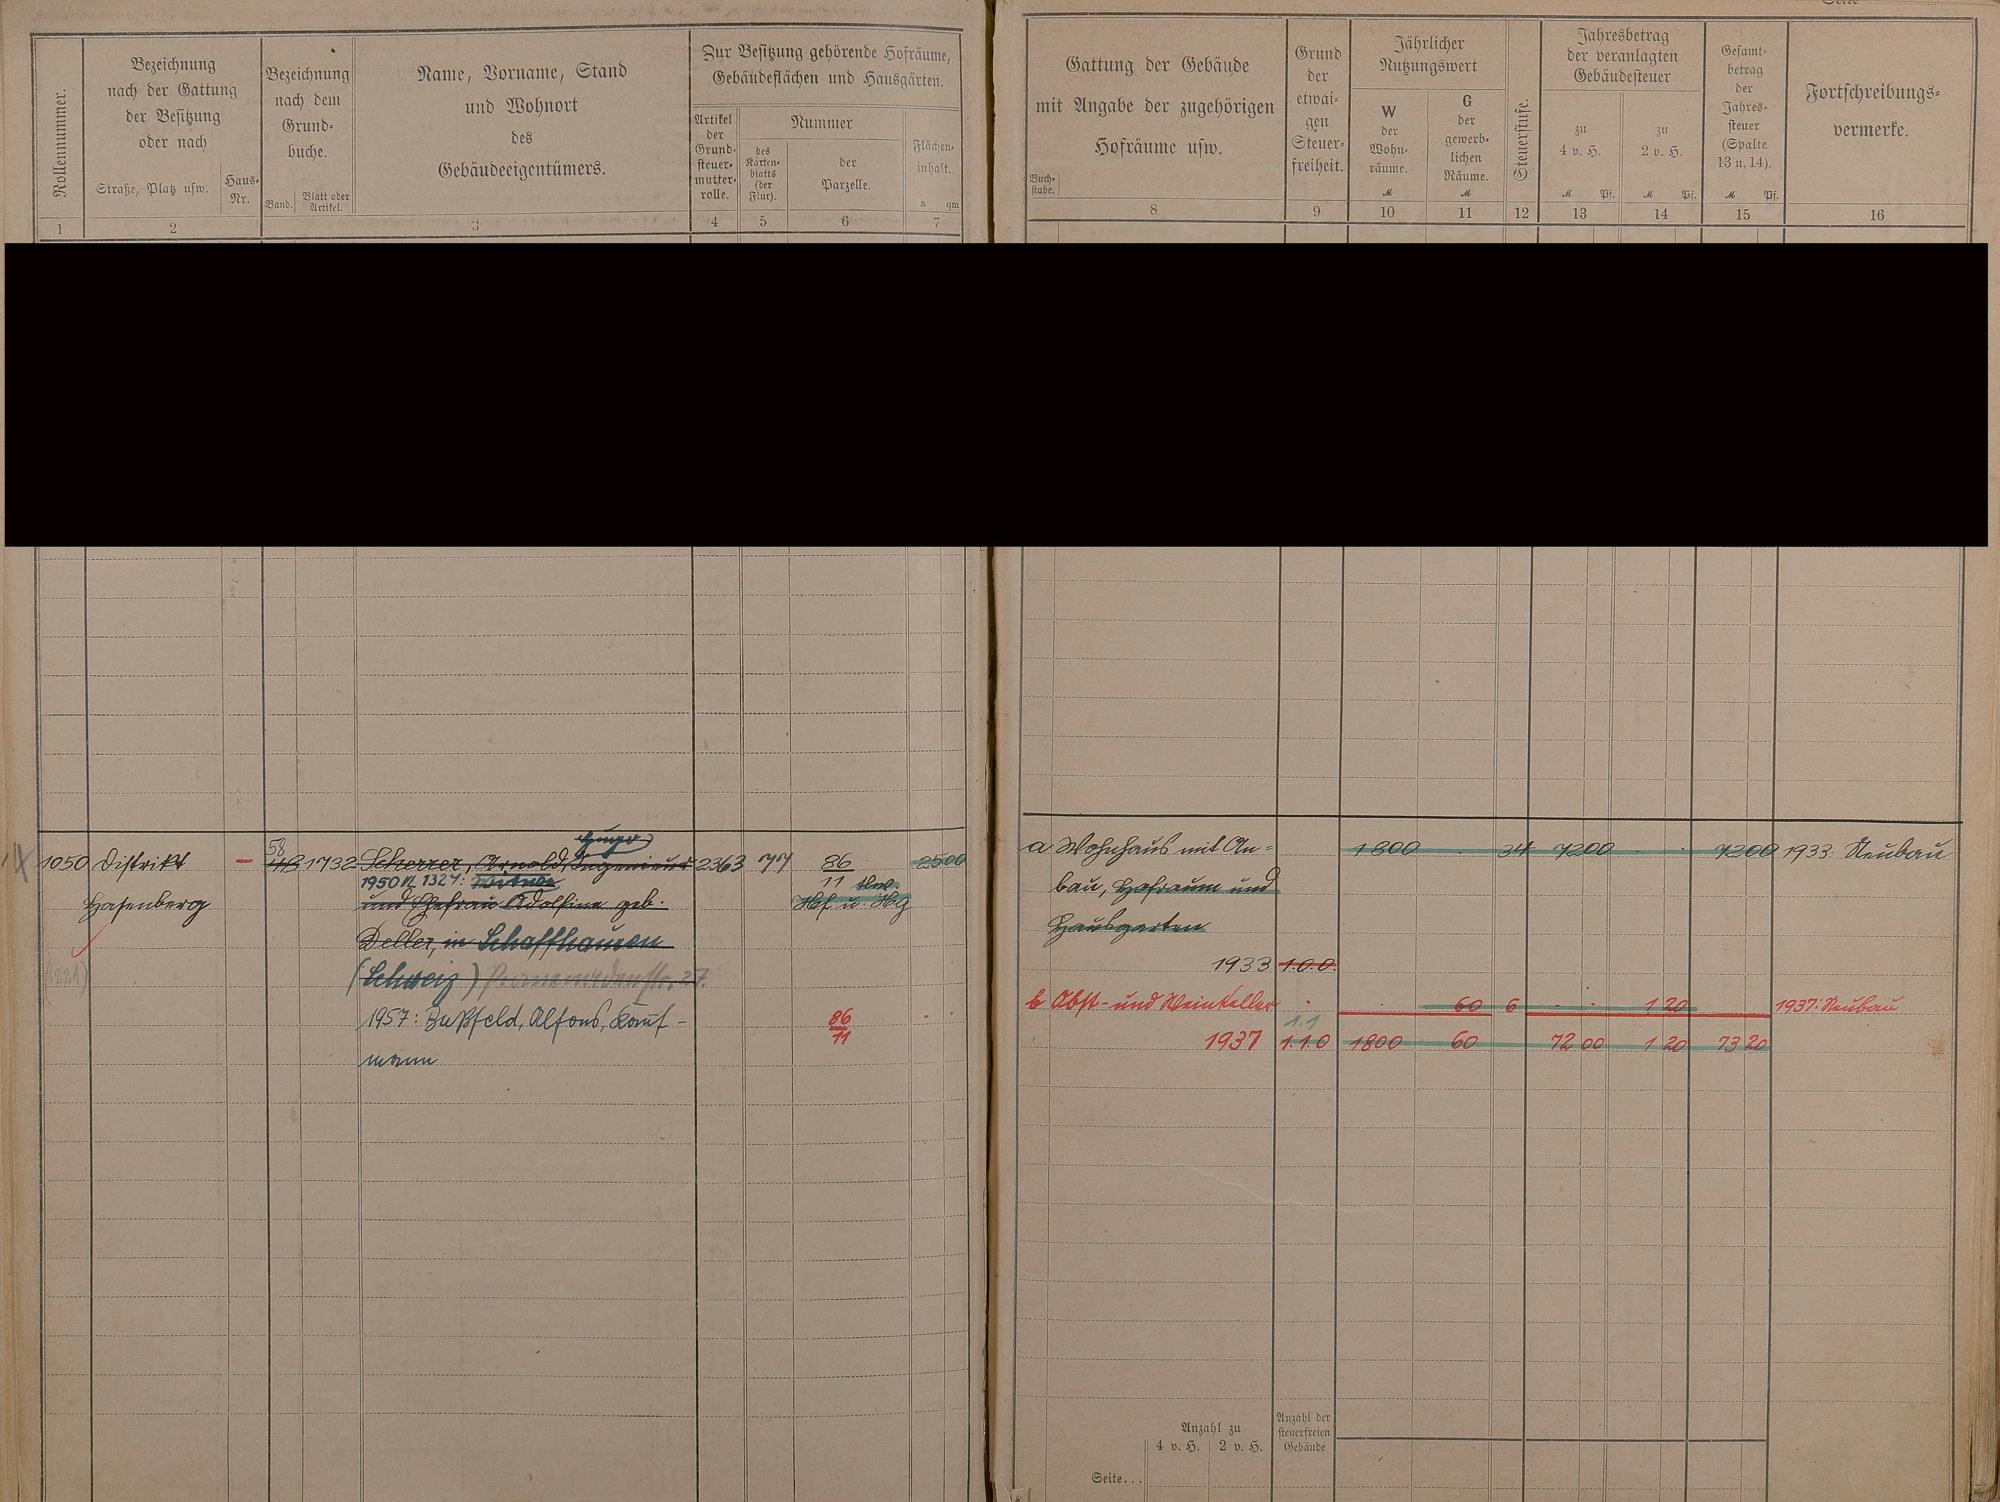 Rollennummer.
Bezeichnung
nach der Gattung
der Besitzung
oder nach
Straße, Platz usw.
Haus-
Nr.
Bezeichnung
nach dem
Grund-
buche.
Band.
Blatt oder
Artikel.
Name, Vorname, Stand
und Wohnort
des
Gebäudeeigentümers.
Zur Besitzung gehörende Hofräume,
Gebäudeflächen und Hausgärten.
Artikel
der
Grund-
steuer-
mutter-
rolle.
Nummer
des
Karten-
blatts
(der
Flur).
der
Parzelle.
Flächen-
inhalt.
a qm
1 2 3 4 5 6 7
1050 Distrikt – 58 48 1732 Scherrer, Arnold, Hugo Ingenieur 2363 77 86 2500
1950 N 1324: Witwe 11 tlw.
Hasenberg und Ehefrau Adolfine geb. Hf u. Hg
Deller, in Schaffhausen
(1221) (Schweiz) Promenadenstr. 27.
1957: Bußfeld, Alfons, Kauf- 86
11
mann
Seite
Gattung der Gebäude
mit Angabe der zugehörigen
Hofräume usw.
Buch-
stabe.
Grund
der
etwai-
gen
Steuer-
freiheit.
Jährlicher
Nutzungswert
W
der
Wohn-
räume.
M
G
der
gewerb-
lichen
Räume.
M
Steuerstufe.
Jahresbetrag
der veranlagten
Gebäudesteuer
zu
4 v. H.
M Pf.
zu
2 v. H.
M Pf.
Gesamt-
betrag
der
Jahres-
steuer
(Spalte
13 u. 14).
M Pf.
Fortschreibungs-
vermerke.
8 9 10 11 12 13 14 15 16
a Wohnhaus mit An- 1800 . 34 7200 . . 7200 1933: Neubau
bau, Hofraum und
Hausgarten
1933 1.0.0.
b Obst- und Weinkeller . . 60 6 . . 1 20 1937: Neubau
1.1
1937 1.1.0 1800 60 72 00 1 20 73 20
Anzahl zu
4 v. H. 2 v. H.
Anzahl der
steuerfreien
Gebäude
Seite...